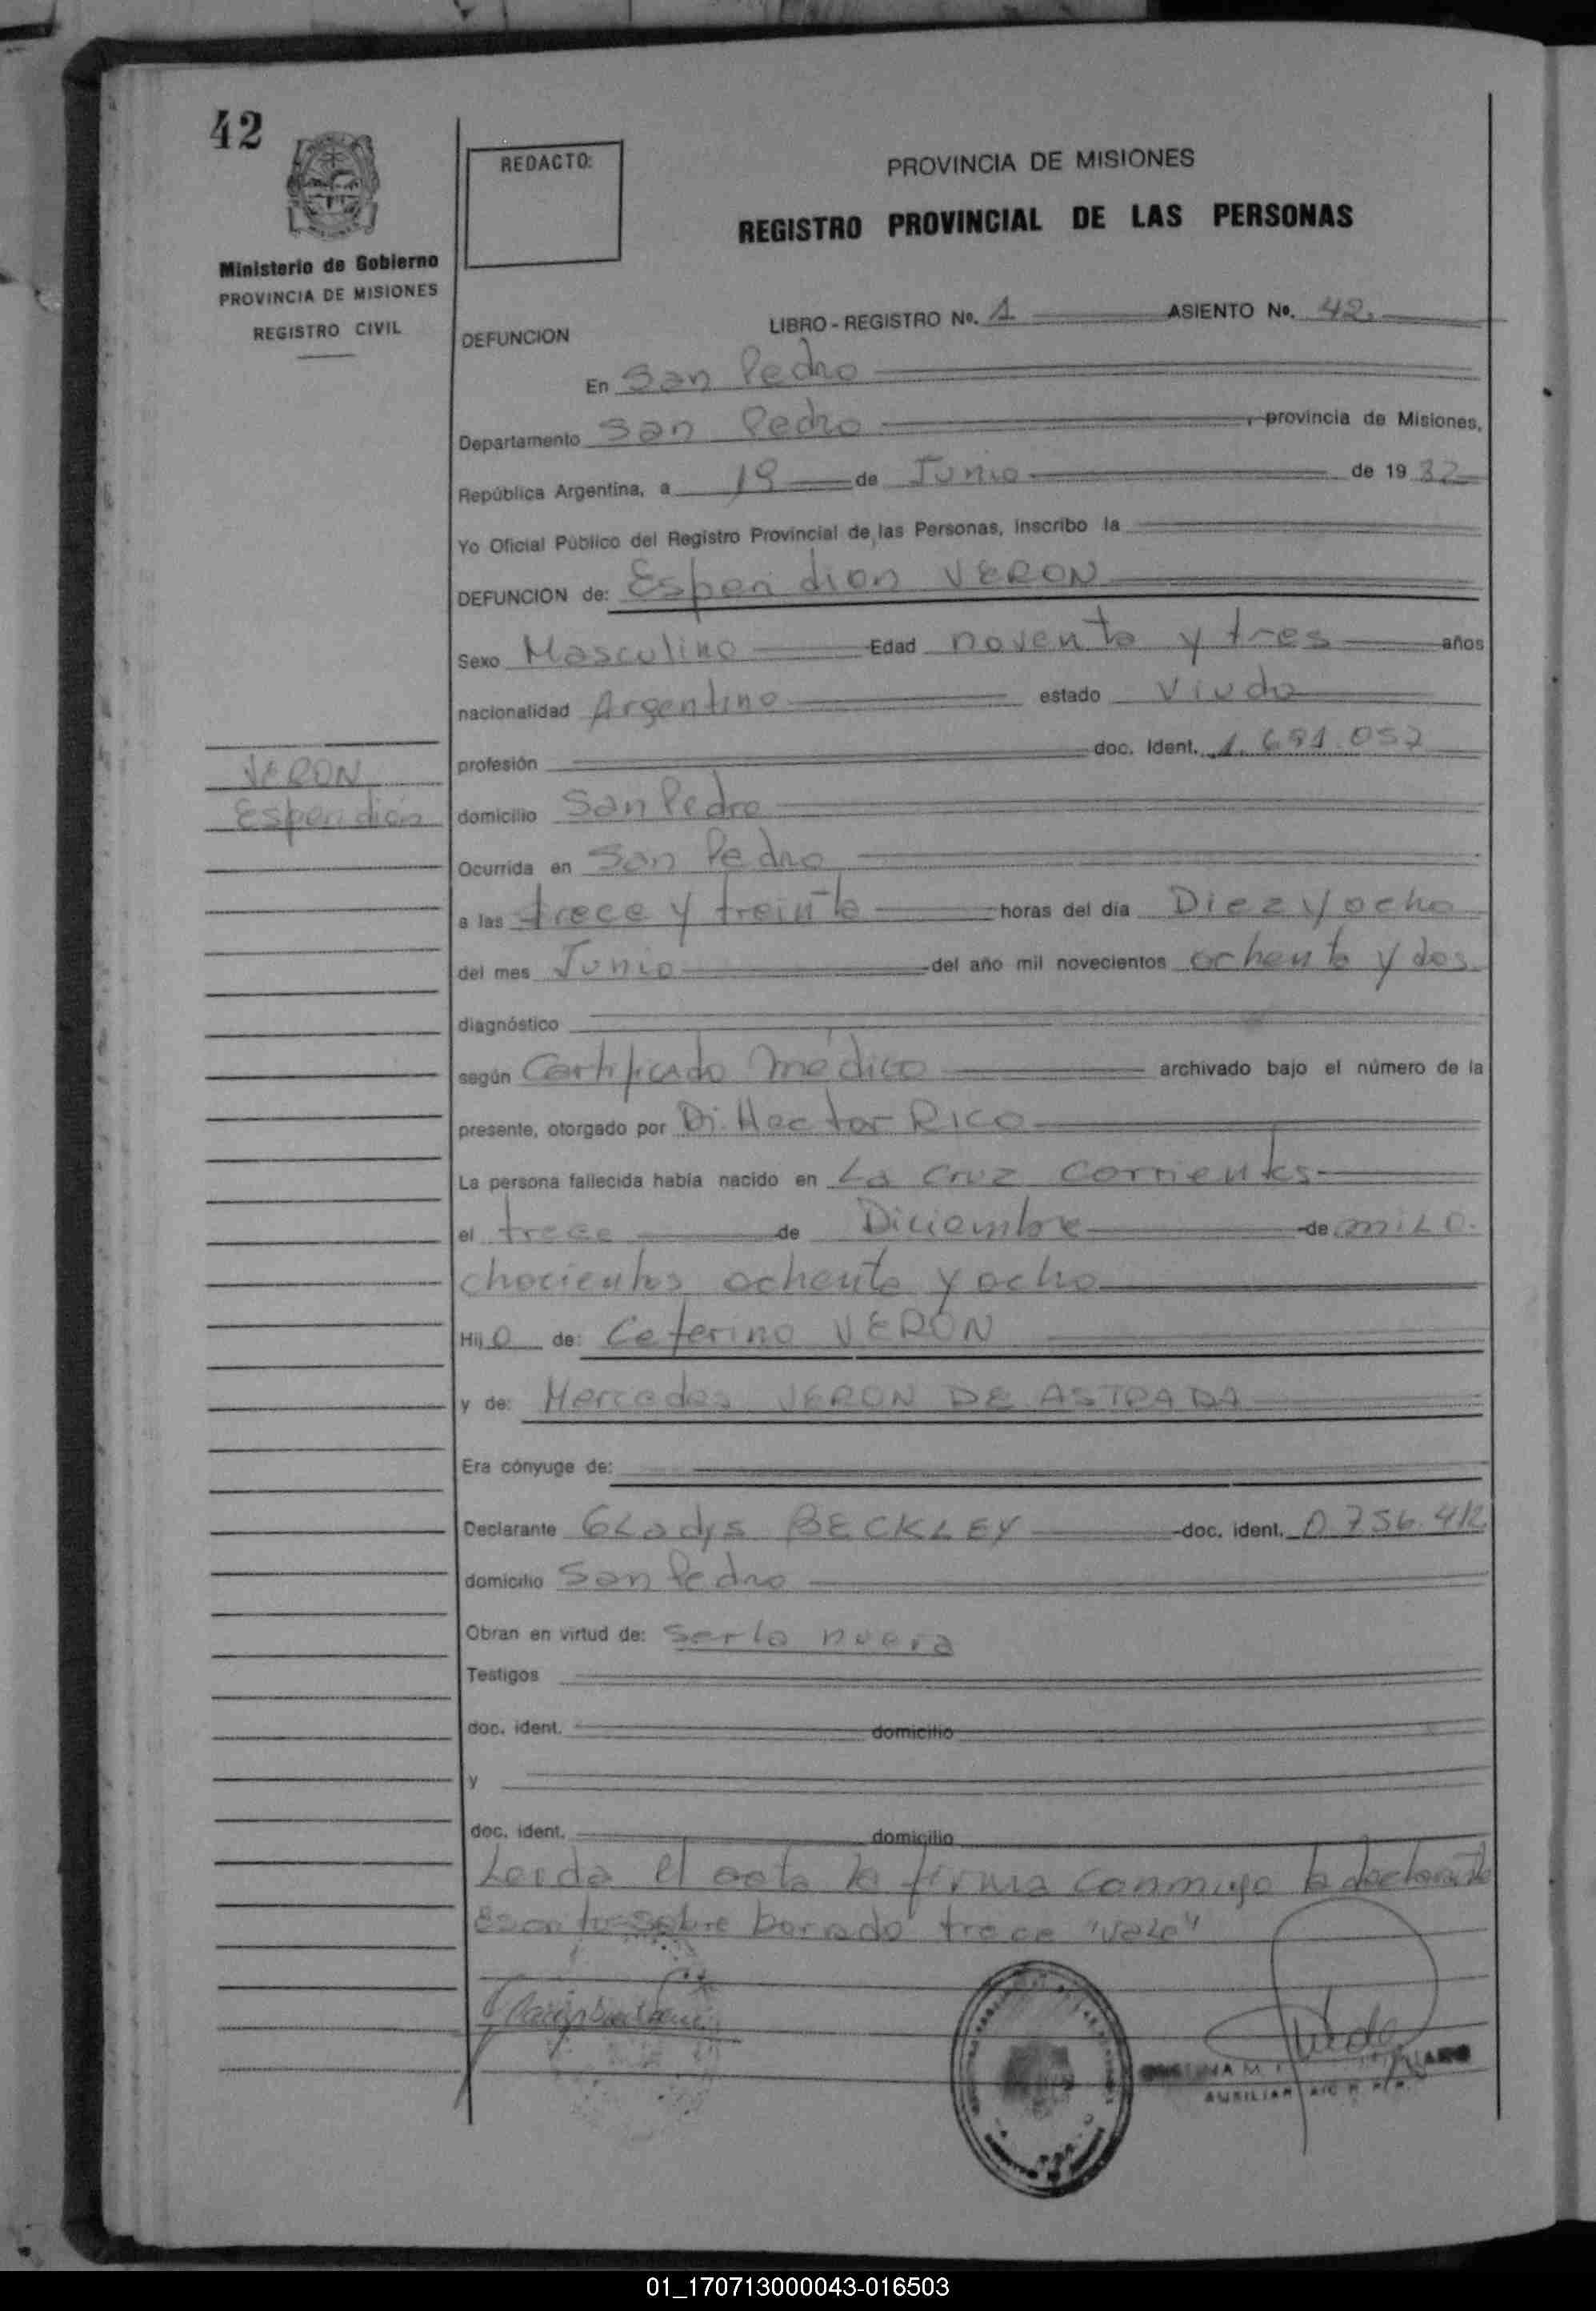 42
REDACTO:
PROVINCIA DE MISIONES
REGISTRO PROVINCIAL DE LAS PERSONAS
Ministerio de Gobierno
PROVINCIA DE MISIONES
REGISTRO CIVIL
DEFUNCION
LIBRO - REGISTRO No. 1 ASIENTO No. 42
En San Pedro
Departamento San Pedro, provincia de Misiones,
República Argentina, a 19 de Junio de 19 82
Yo Oficial Público del Registro Provincial de las Personas, inscribo la
DEFUNCION de: Esperidion VERON
Sexo Masculino Edad noventa y tres años
nacionalidad Argentino estado Viudo
profesión doc. Ident. 1.691.057
VERON
Esperidión
domicilio San Pedro
Ocurrida en San Pedro
a las trece y treinta horas del día Diez y ocho
del mes Junio del año mil novecientos ochenta y dos
diagnóstico
según Certificado médico archivado bajo el número de la
presente, otorgado por Dr. Hector RICO
La persona fallecida había nacido en La Cruz Corrientes
el trece de Diciembre de mil o
chocientos ochenta y ocho
Hijo de: Ceferino VERON
y de: Mercedes VERON DE ASTRADA
Era cónyuge de:
Declarante GLadys BECKLEY doc. ident. 0.756.412
domicilio San Pedro
Obran en virtud de: ser la nuera
Testigos
doc. ident. domicilio
y
doc. ident. domicilio
Leida el acta la firma conmigo la declarante
Escrito sobre borrado trece "vale"
AUXILIAR
01_170713000043-016503